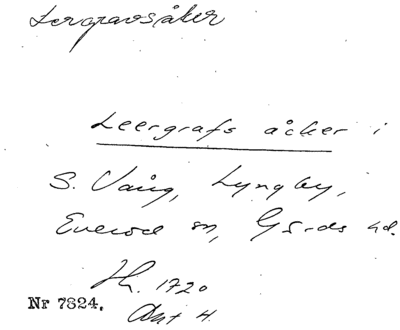 Lergravsåker
Leergrafs åcker i
S. Vång, Lyngby,
Everöd sn, Gärds hd.
Hh. 1720
Nr 7824. Akt 4.